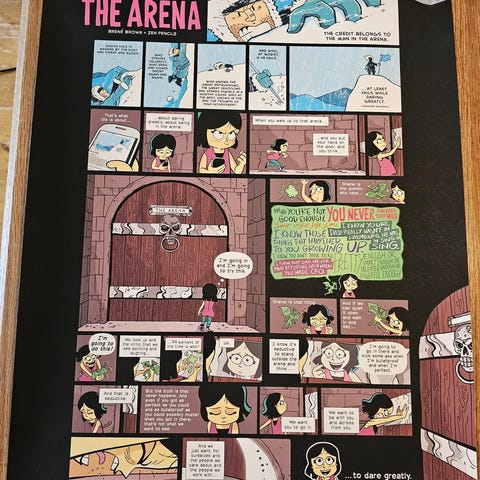 THE ARENA
BRENÉ BROWN + ZEN PENCILS
THE CREDIT BELONGS TO
THE MAN IN THE ARENA.
WHOSE FACE IS
MARRED BY DUST
AND SWEAT AND BLOOD.
WHO
STRIVES
VALIANTLY,
WHO ERRS
AND COMES
SHORT
AGAIN AND
AGAIN.
WHO KNOWS THE
GREAT ENTHUSIASMS,
THE GREAT DEVOTIONS
AND SPENDS HIMSELF IN A
WORTHY CAUSE. WHO AT
THE BEST, KNOWS IN THE
END THE TRIUMPH OF
HIGH ACHIEVEMENT.
AND WHO,
AT WORST,
IF HE FAILS...
...AT LEAST
FAILS WHILE
DARING
GREATLY.
That's what
life is about...
...about daring
greatly, about being
in the arena.
When you walk up to that arena...
...and you put
your hand on
the door, and
you think...
THE ARENA
I'm going in
and I'm going to
try this.
Shame is the
gremlin who
says...
YOU'RE NOT
GOOD ENOUGH.
YOU NEVER
I KNOW THOSE
THINGS THAT HAPPENED
TO YOU GROWING UP.
I KNOW YOUR
DAD REALLY WASN'T IN
LUXEMBOURG, HE WAS
IN SING
SING.
Shame is that thing.
And if we
can quiet it
down and
walk in and
say...
I'm
going to
do this!
We look up and
the critic that we
see pointing and
laughing...
...99 percent of
the time is who?
Us.
I know it's
seductive to
stand outside
the arena
and think...
I'm going to
go in there and
kick some ass when
I'm bulletproof
and when I'm
perfect.
And that is
seductive.
But the truth is that
never happens. And
even if you got as
perfect as you could
and as bulletproof as
you could possibly muster
when you got in there,
that's not what we
want to see.
We want
you to go in.
We want to
be with you
and across
from you.
And we
just want, for
ourselves and
the people we
care about and
the people we
work with...
...to dare greatly.